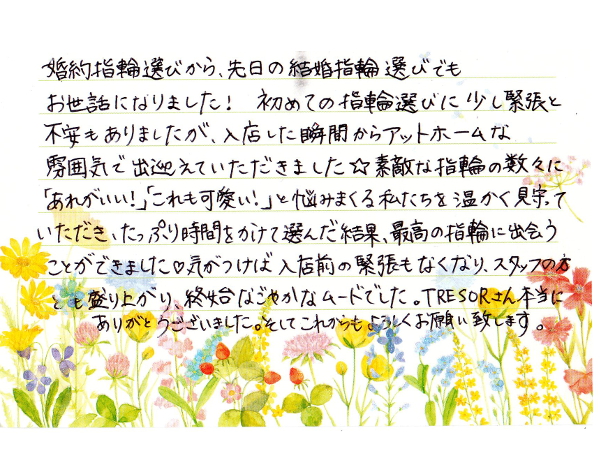 婚約指輪選びから、先日の結婚指輪選びでも
お世話になりました! 初めての指輪選びに少し緊張と
不安もありましたが、入店した瞬間からアットホームな
雰囲気で出迎えていただきました☆素敵な指輪の数々に
「あれがいい!」「これも可愛い!」と悩みまくる私たちを温かく見守って
いただき、たっぷり時間をかけて選んだ結果、最高の指輪に出会う
ことができました♡気がつけば入店前の緊張もなくなり、スタッフの方
とも盛り上がり、終始なごやかなムードでした。TRESORさん本当に
ありがとうございました。そしてこれからもよろしくお願い致します。